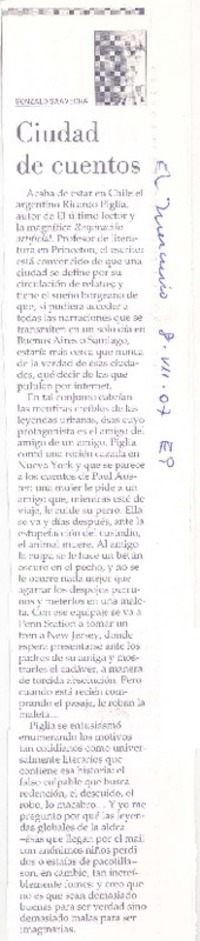 GONZALO SAAVEDRA
Ciudad
de cuentos
Acaba de estar en Chile el
argentino Ricardo Piglia,
autor de El último lector y
la magnífica Respiración
artificial. Profesor de litera-
tura en Princeton, el escritor
está convencido de que una
ciudad se define por su
circulación de relatos; y
tiene el sueño borgeano de
que, si pudiera acceder a
todas las narraciones que se
transmiten en un solo día en
Buenos Aires o Santiago,
estaría más cerca que nunca
de la verdad de esas ciuda-
des, qué decir de las que
pululan por internet.
En tal conjunto cabrían
las mentiras creíbles de las
leyendas urbanas, esas cuyo
protagonista es el amigo del
amigo de un amigo. Piglia
contó una recién cazada en
Nueva York y que se parece
a los cuentos de Paul Aus-
ter: una mujer le pide a un
amigo que, mientras esté de
viaje, le cuide su perro. Ella
se va y días después, ante la
estupefacción del custodio,
el animal muere. Al amigo
la culpa se le hace un betún
oscuro en el pecho, y no se
le ocurre nada mejor que
agarrar los despojos perru-
nos y meterlos en una male-
ta. Con ese equipaje se va a
Penn Station a tomar un
tren a New Jersey, donde
espera presentarse ante los
padres de su amiga y mos-
trarles el cadáver, a manera
de torcida absolución. Pero
cuando está recién com-
prando el pasaje, le roban la
maleta...
Piglia se entusiasmó
enumerando los motivos
tan cotidianos como univer-
salmente literarios que
contiene esa historia: el
falso culpable que busca
redención, el descuido, el
robo, lo macabro... Y yo me
pregunto por qué las leyen-
das globales de la aldea
—esas que llegan por el mail
con anónimos niños perdi-
dos o estafas de pacotilla—
son, en cambio, tan increí-
blemente fomes: y creo que
no es que sean demasiado
buenas para ser verdad sino
demasiado malas para ser
imaginarias.
El Mercurio 8-VII-07 E9